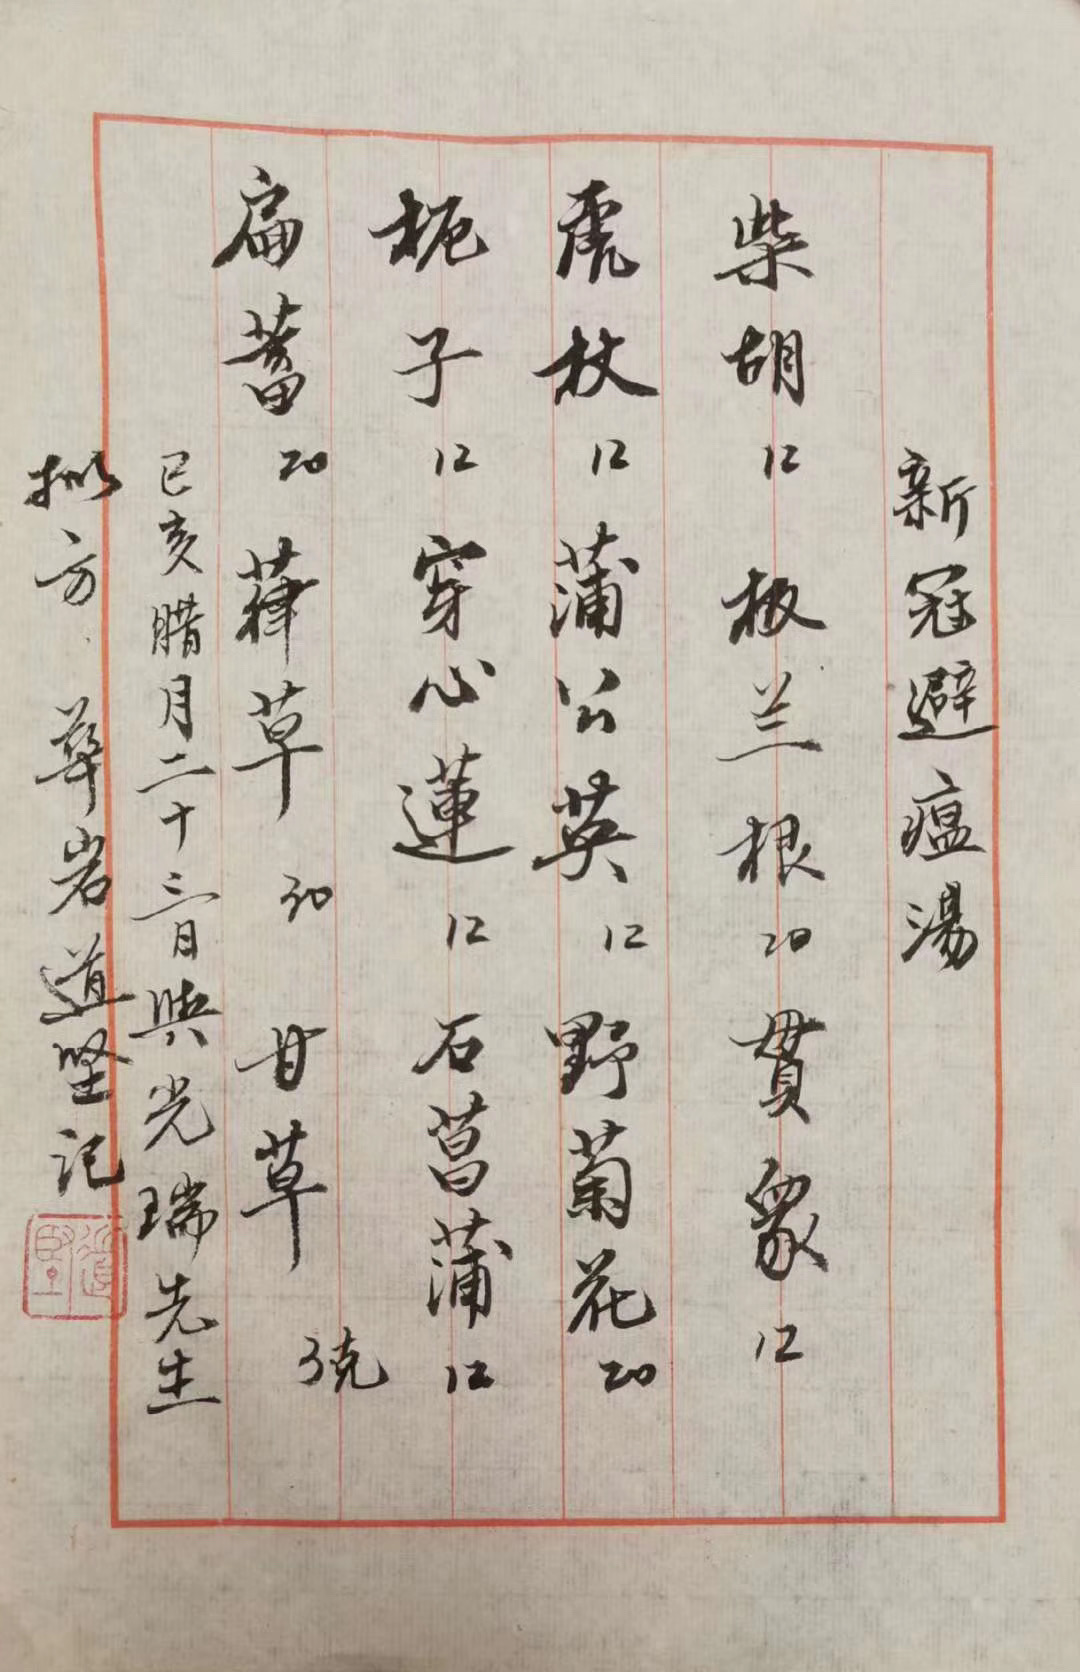 新冠避瘟湯
柴胡12 板兰根20 贯衆12
虎杖12 蒲公英12 野菊花20
栀子12 穿心蓮12 石菖蒲12
扁蓄20 葎草30 甘草3克
己亥腊月二十三日與光瑞先生
拟方、華岩道坚记
道堅